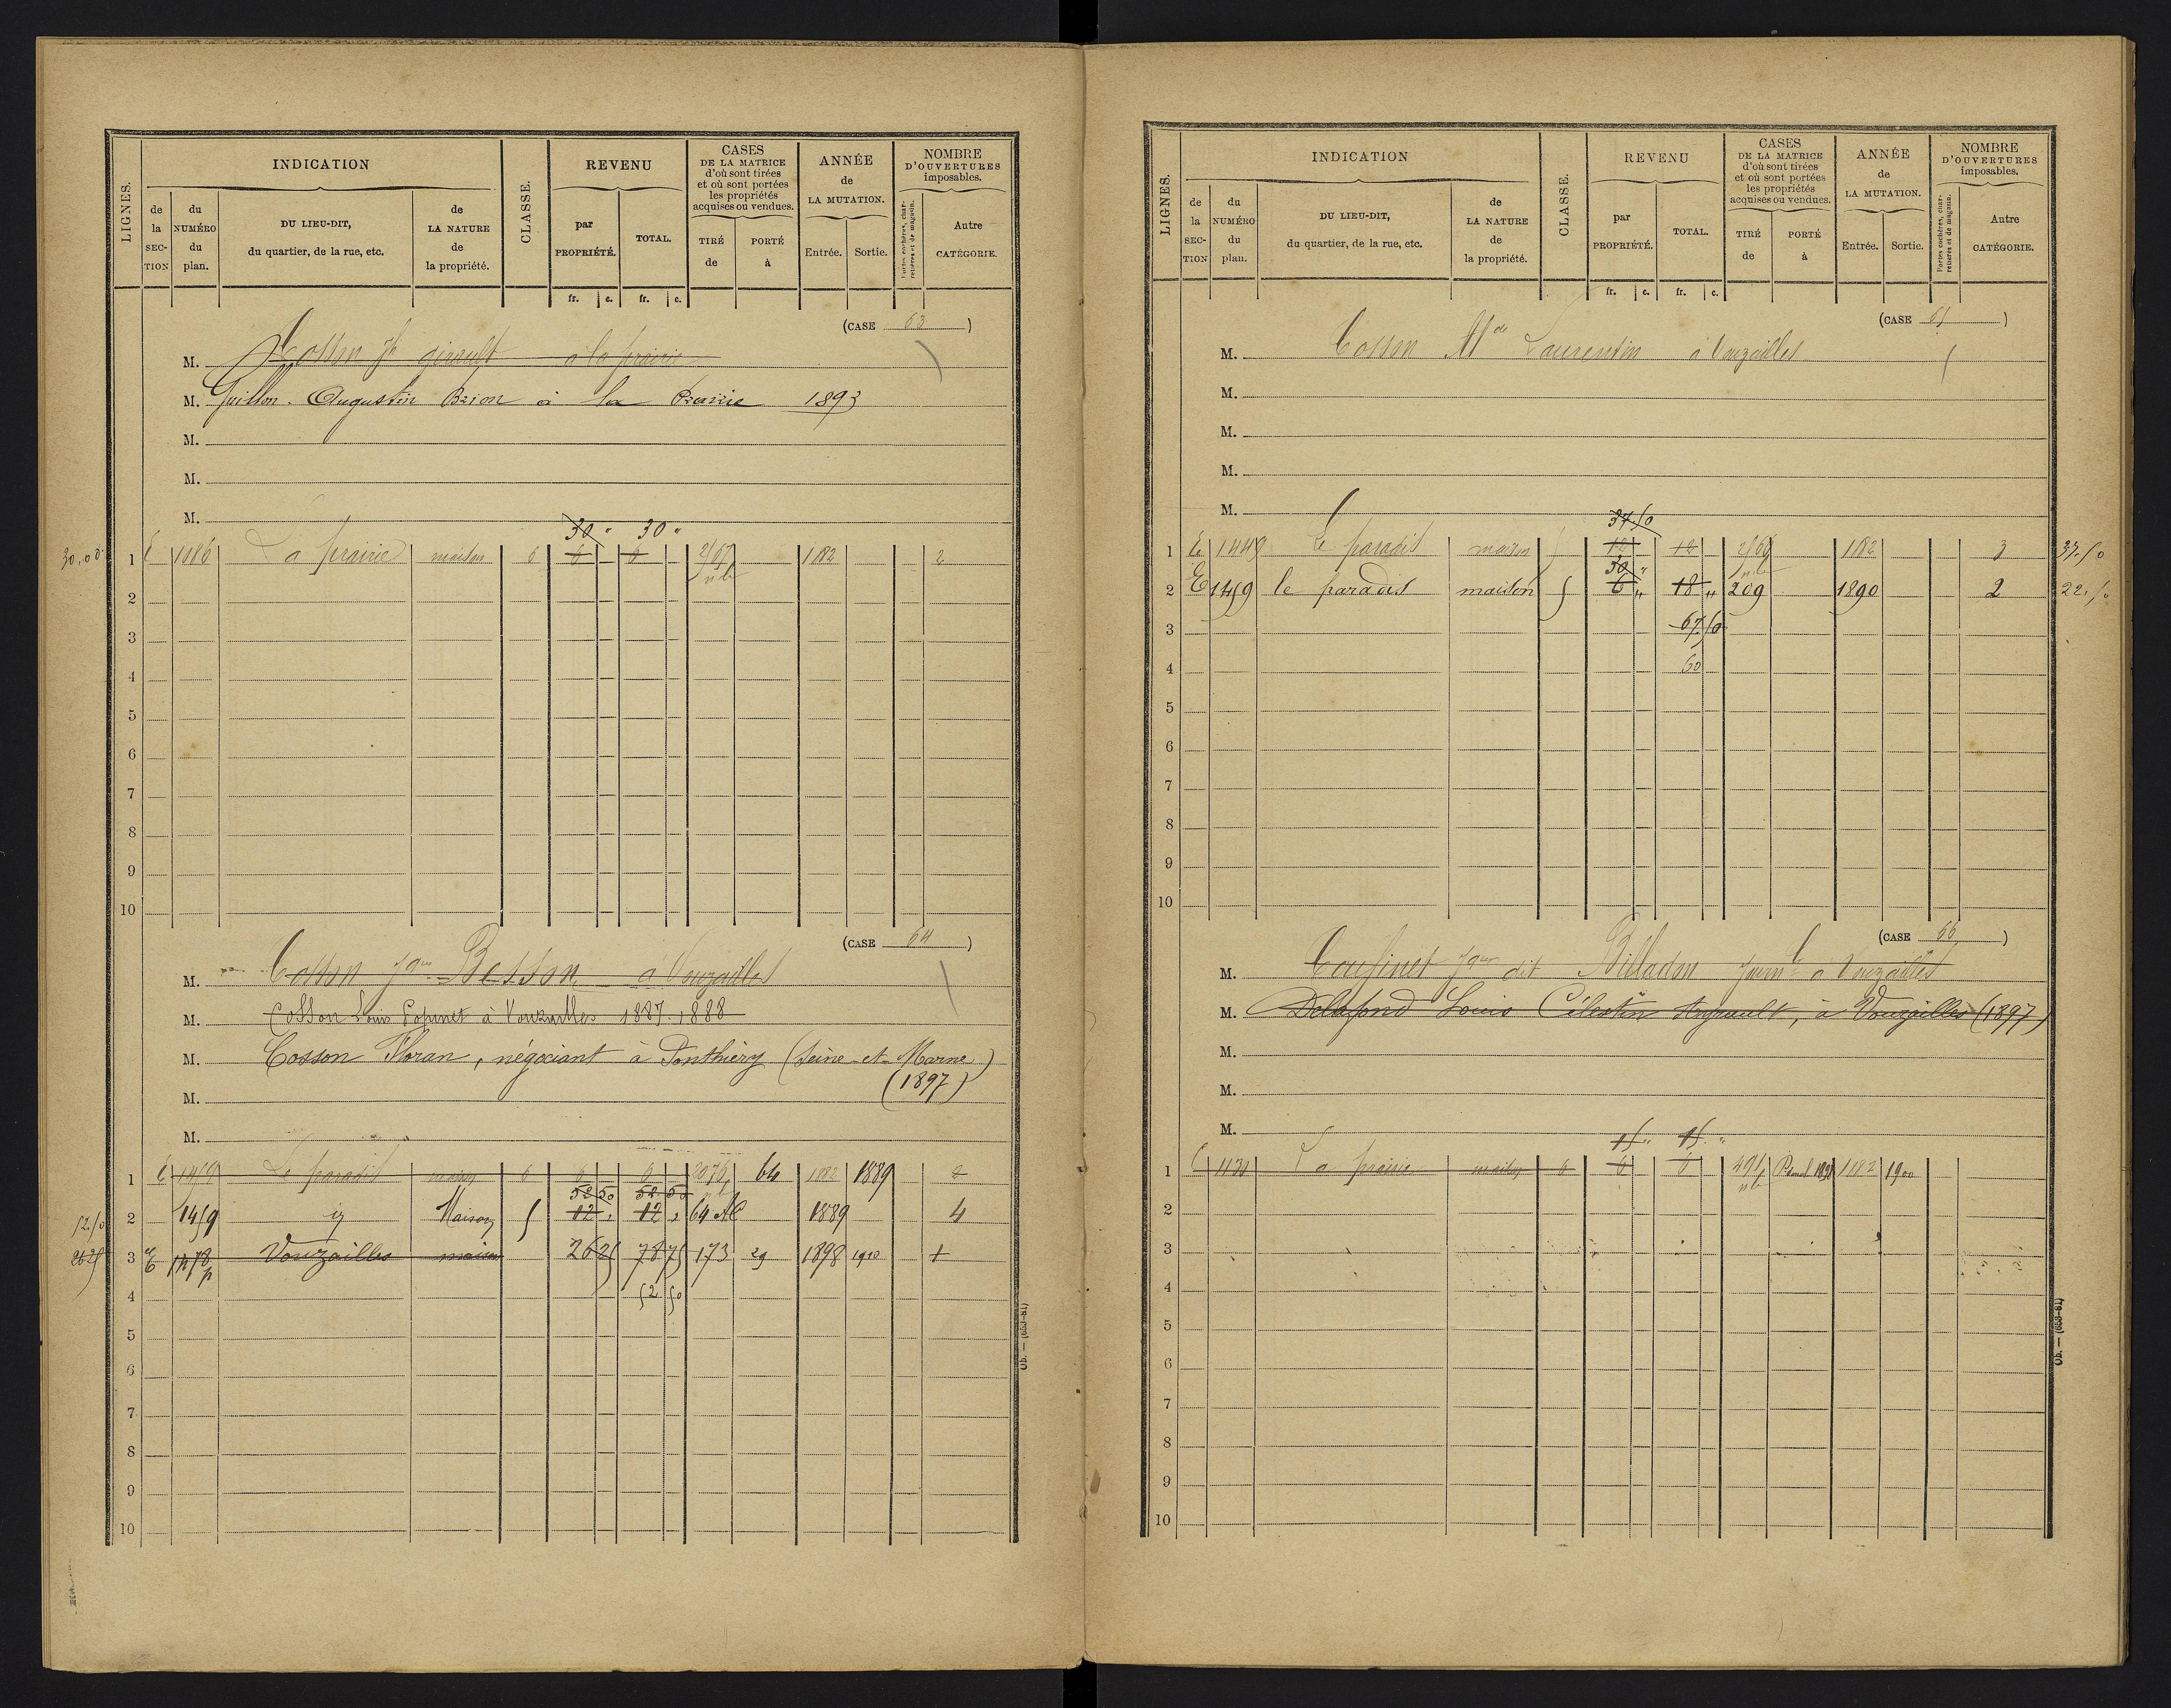 LIGNES.
INDICATION
CLASSE.
REVENU
CASES
DE LA MATRICE
d'où sont tirées
et où sont portées
les propriétés
acquises ou vendues.
ANNÉE
de
LA MUTATION.
NOMBRE
D'OUVERTURES
imposables.
de la SEC-TION
du NUMÉRO du plan.
DU LIEU-DIT,
du quartier, de la rue, etc.
de LA NATURE de la propriété.
par PROPRIÉTÉ.
TOTAL.
TIRÉ de
PORTÉ à
Entrée.
Sortie.
Portes cochères, charretières et de magasin.
Autre CATÉGORIE.
fr. c. fr. c.
(CASE 63)
M. Cosson girault à la prairie
M. Guillon Augustin Brion à la Prairie 1893
M.
M.
M.
30 " 30 "
1 E 1086 La prairie maison 6 6 6 2/67 1882 2
2
3
4
5
6
7
8
9
10
(CASE 64)
M. Cosson Jques Besson à Vouzailles
M. Cosson Louis Popinet à Vouzailles 1887-1888
M. Cosson Floran, négociant à Ponthierry (Seine-et-Marne)
(1897)
M.
M.
1 E 1459 Le paradis maison 6 6 6 64 1882 1889 2
52 50 52 50
52.50 2 1459 Maison 12 12 64 1889 4
26 25 3 E Vouzailles maison 26 25 78 75 173 29 1898 1910 1
4 52 50
5
6
7
8
9
10
Ob. — (653-81)
LIGNES.
INDICATION
CLASSE.
REVENU
CASES
DE LA MATRICE
d'où sont tirées
et où sont portées
les propriétés
acquises ou vendues.
ANNÉE
de
LA MUTATION.
NOMBRE
D'OUVERTURES
imposables.
de la SEC-TION
du NUMÉRO du plan.
DU LIEU-DIT,
du quartier, de la rue, etc.
de LA NATURE de la propriété.
par PROPRIÉTÉ.
TOTAL.
TIRÉ de
PORTÉ à
Entrée.
Sortie.
Portes cochères, charretières et de magasin.
Autre CATÉGORIE.
fr. c. fr. c.
(CASE 65)
M. Cosson Laurentin à Vouzailles
M.
M.
M.
M.
37.50
1 E 1449 Le paradis maison 12 12 1882 3 37.50
30 "
2 E 1459 le paradis maison 6 " 18 " 209 1890 2 22.50
3 67.50
4 60
5
6
7
8
9
10
(CASE 66)
M. Cousinet Jques dit Billadon à Vouzailles
M. Delafond Louis Célestin Augeault, à Vouzailles (1897)
M.
M.
M.
15 " 15 "
1 E 1130 La prairie maison 6 6 6 491 1882 1900
2
3
4
5
6
7
8
9
10
Ob. — (653-81)